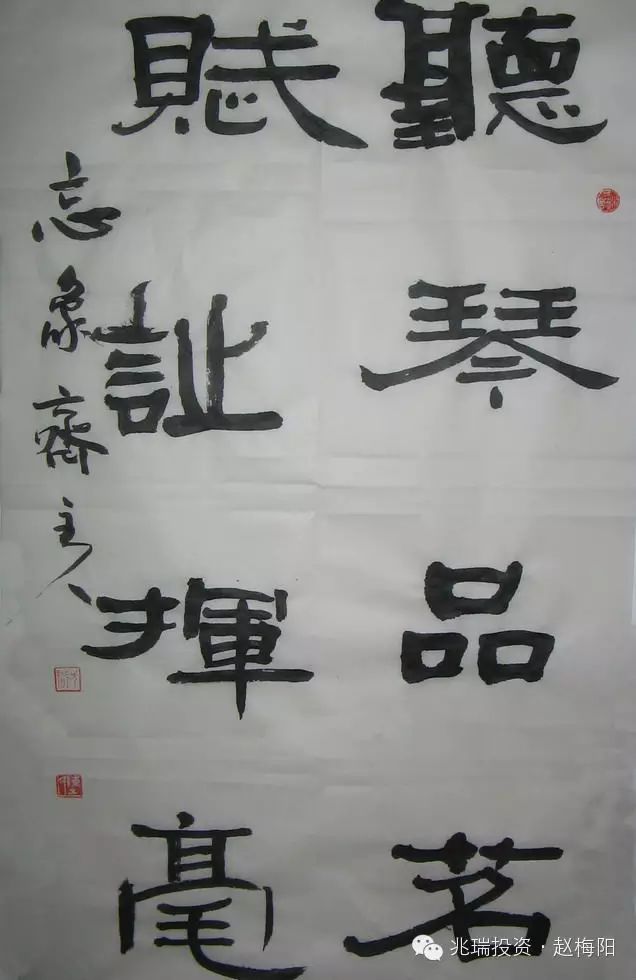 聽琴品茗
賦詩揮毫
忘象齋主人
兆瑞投资·赵梅阳